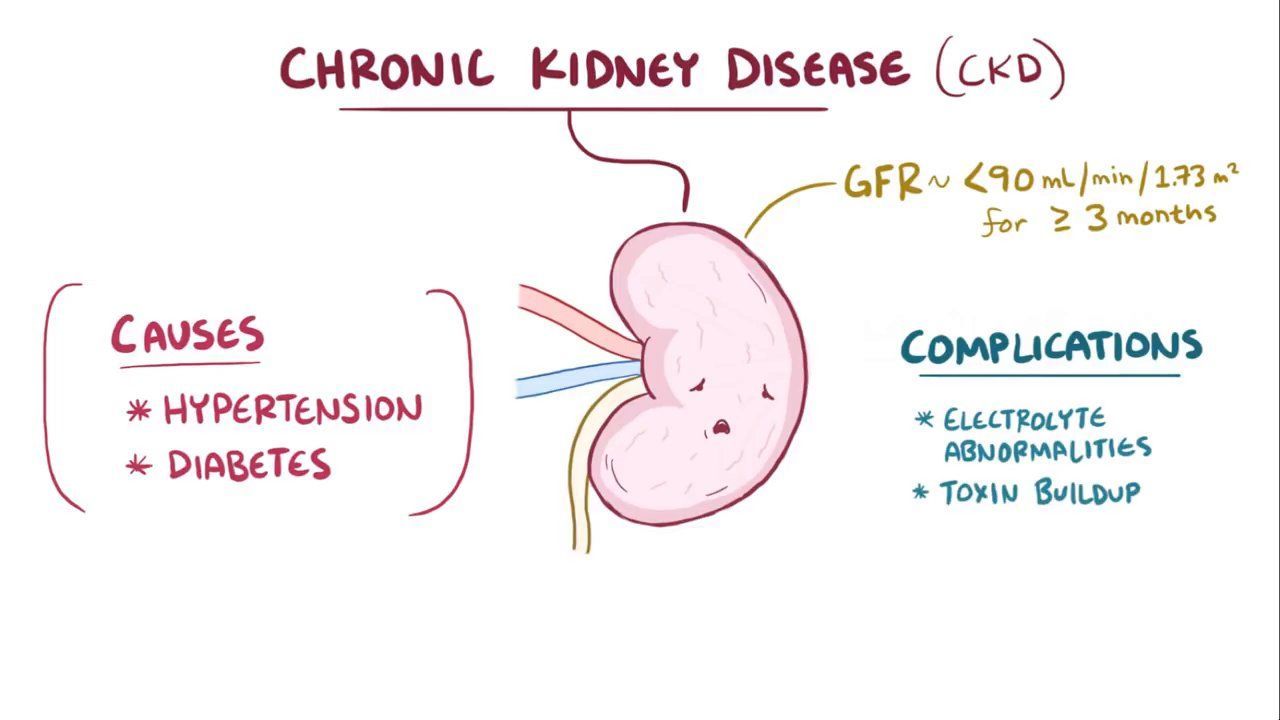 CHRONIC KIDNEY DISEASE (CKD)
GFR ~ <90 mL/min/1.73 m²
for ≥ 3 months
CAUSES
* HYPERTENSION
* DIABETES
COMPLICATIONS
* ELECTROLYTE
ABNORMALITIES
* TOXIN BUILDUP